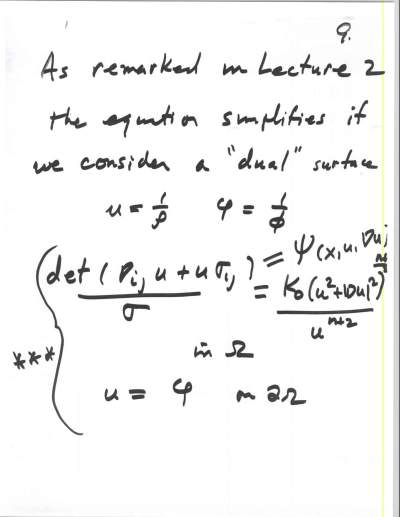 9.
As remarked in Lecture 2
the equation simplifies if
we consider a "dual" surface
u = 1/ρ φ = 1/ϕ
det(∇ij u + u σij)/σ = ψ(x, u, ∇u)
*** = K0(u²+|∇u|²)^{n/2}/u^{n+2}
in Ω
u = φ in ∂Ω